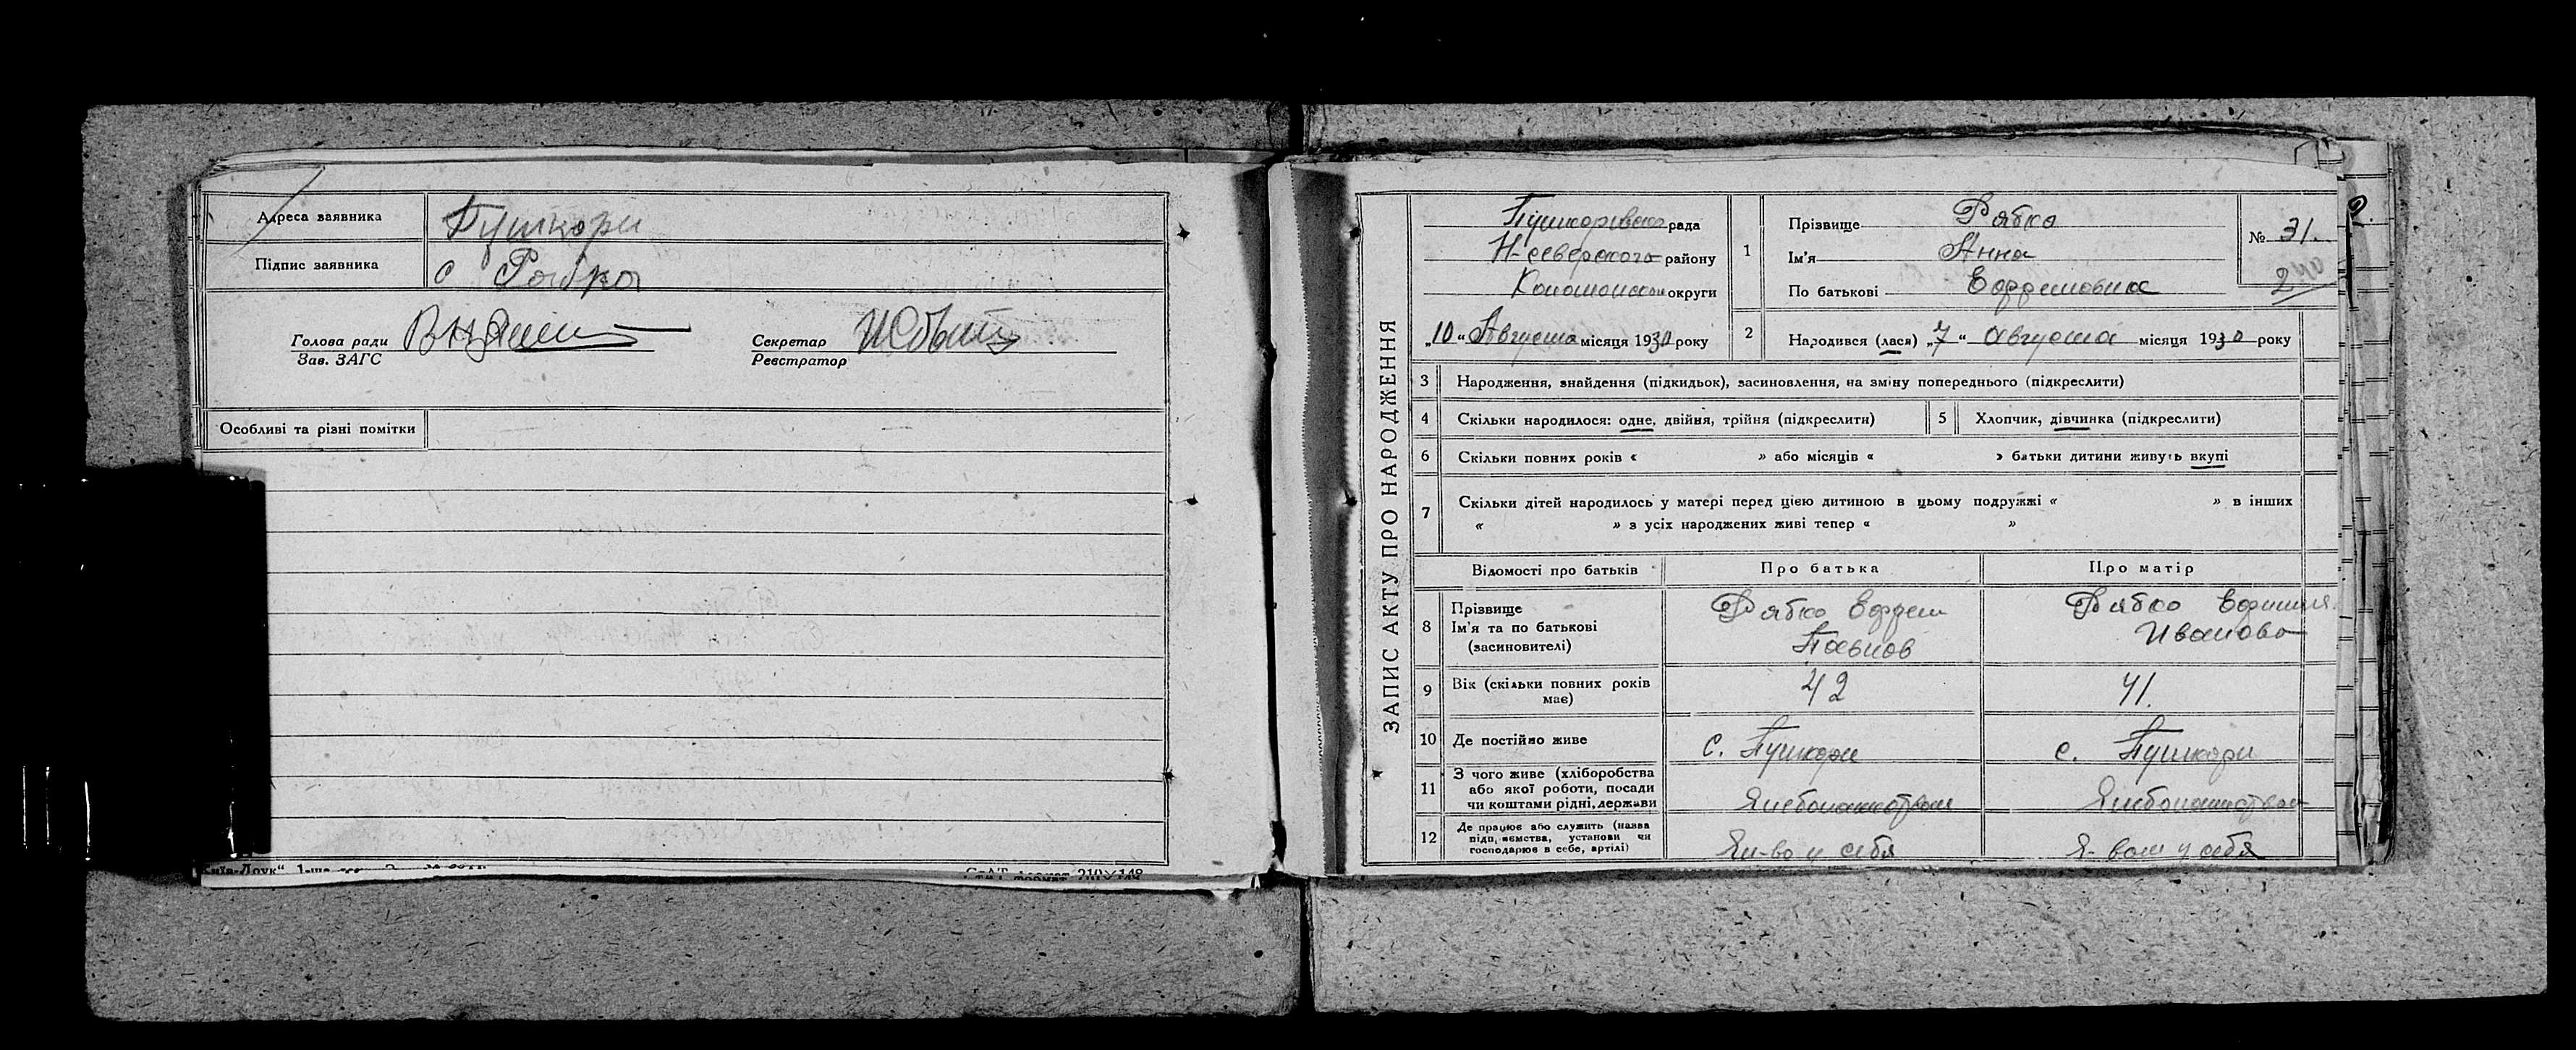 Адреса заявника Пушкори
Підпис заявника с Рябко
Голова ради
Зав. ЗАГС
Секретар
Реєстратор
Особливі та різні помітки
ЗАПИС АКТУ ПРО НАРОДЖЕННЯ
рада
Н-Северского району
округи
„10“ Августа місяця 1930 року
1
Прізвище Рябко
Ім'я Анна
По батькові Ефремовна
№ 31.
240
2 Народився (лася) „7“ августа місяця 1930 року
3 Народження, знайдення (підкидьок), засиновлення, на зміну попереднього (підкреслити)
4 Скільки народилося: одне, двійня, трійня (підкреслити)
5 Хлопчик, дівчинка (підкреслити)
6 Скільки повних років « » або місяців « » батьки дитини живуть вкупі
7 Скільки дітей народилось у матері перед цією дитиною в цьому подружжі « » в інших
« » з усіх народжених живі тепер « »
Відомості про батьків Про батька Про матір
8 Прізвище
Ім'я та по батькові
(засиновителі)
Рябко Ефрем
Павлов
Рябко
Иванова
9 Вік (скільки повних років
має)
42 41.
10 Де постійно живе с. Пушкори с. Пушкори
11 З чого живе (хліборобства
або якої роботи, посади
чи коштами рідні, держави
12 Де працює або служить (назва
підприємства, установи чи
господарює в себе, артілі)
у себя у себя
210×148